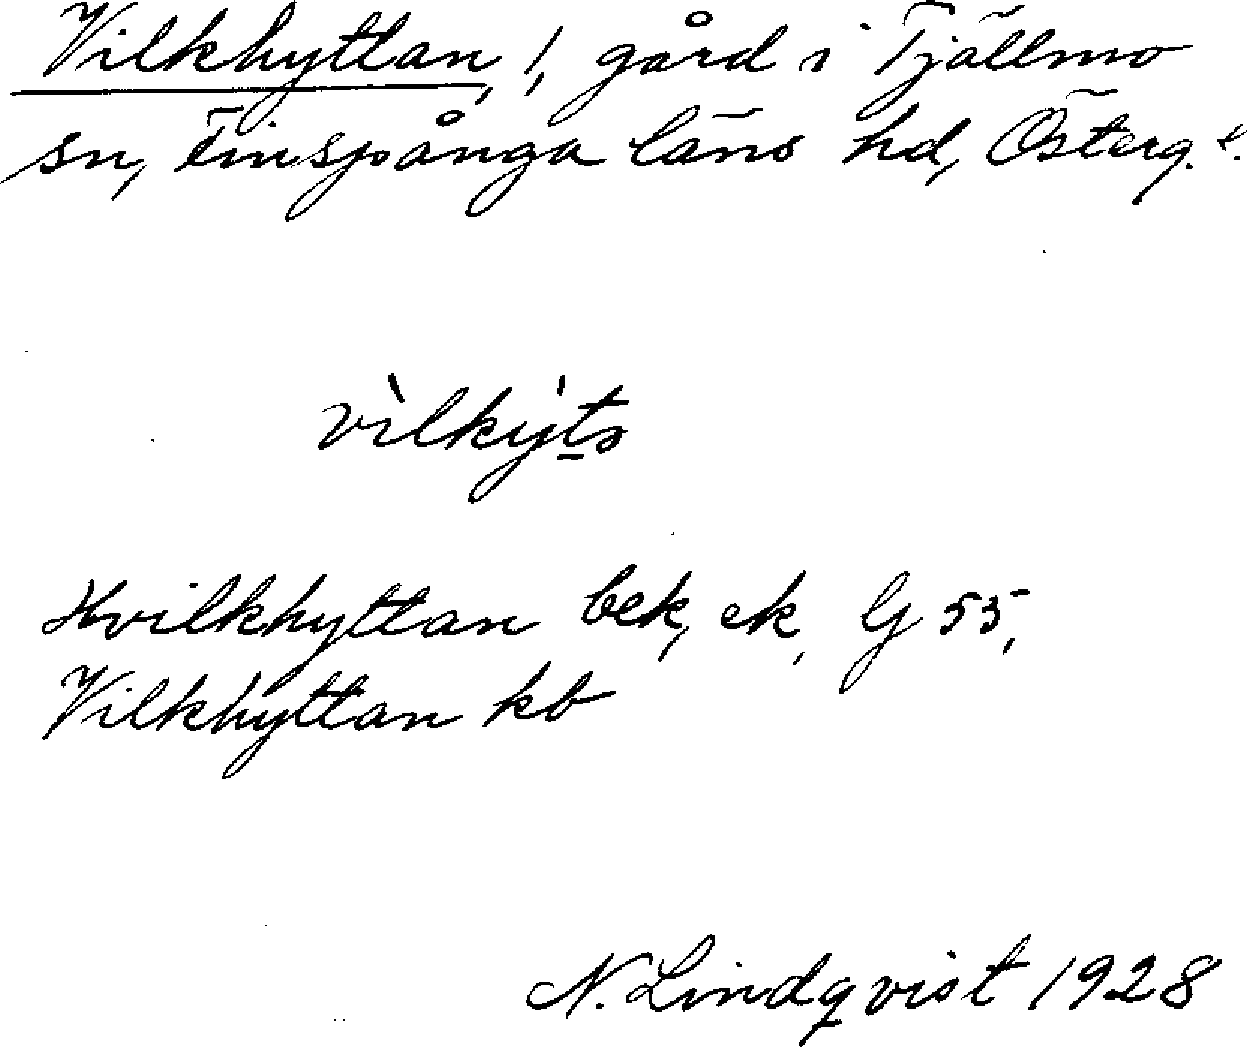 Vilkhyttan, !, gård i Tjällmo
sn, Finspånga läns hd, Österg. l.
vìlky̍t̠ɑ
Hvilkhyttan bek, ek, G 55,
Vilkhyttan kb
N. Lindqvist 1928